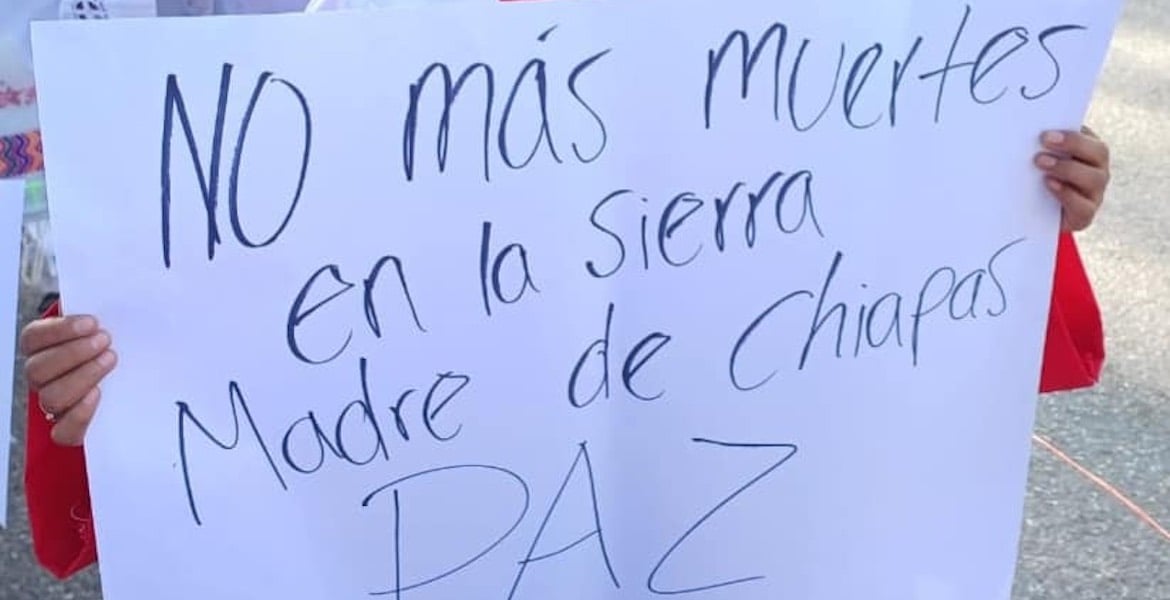 NO más muertes
en la sierra
Madre de Chiapas
PAZ